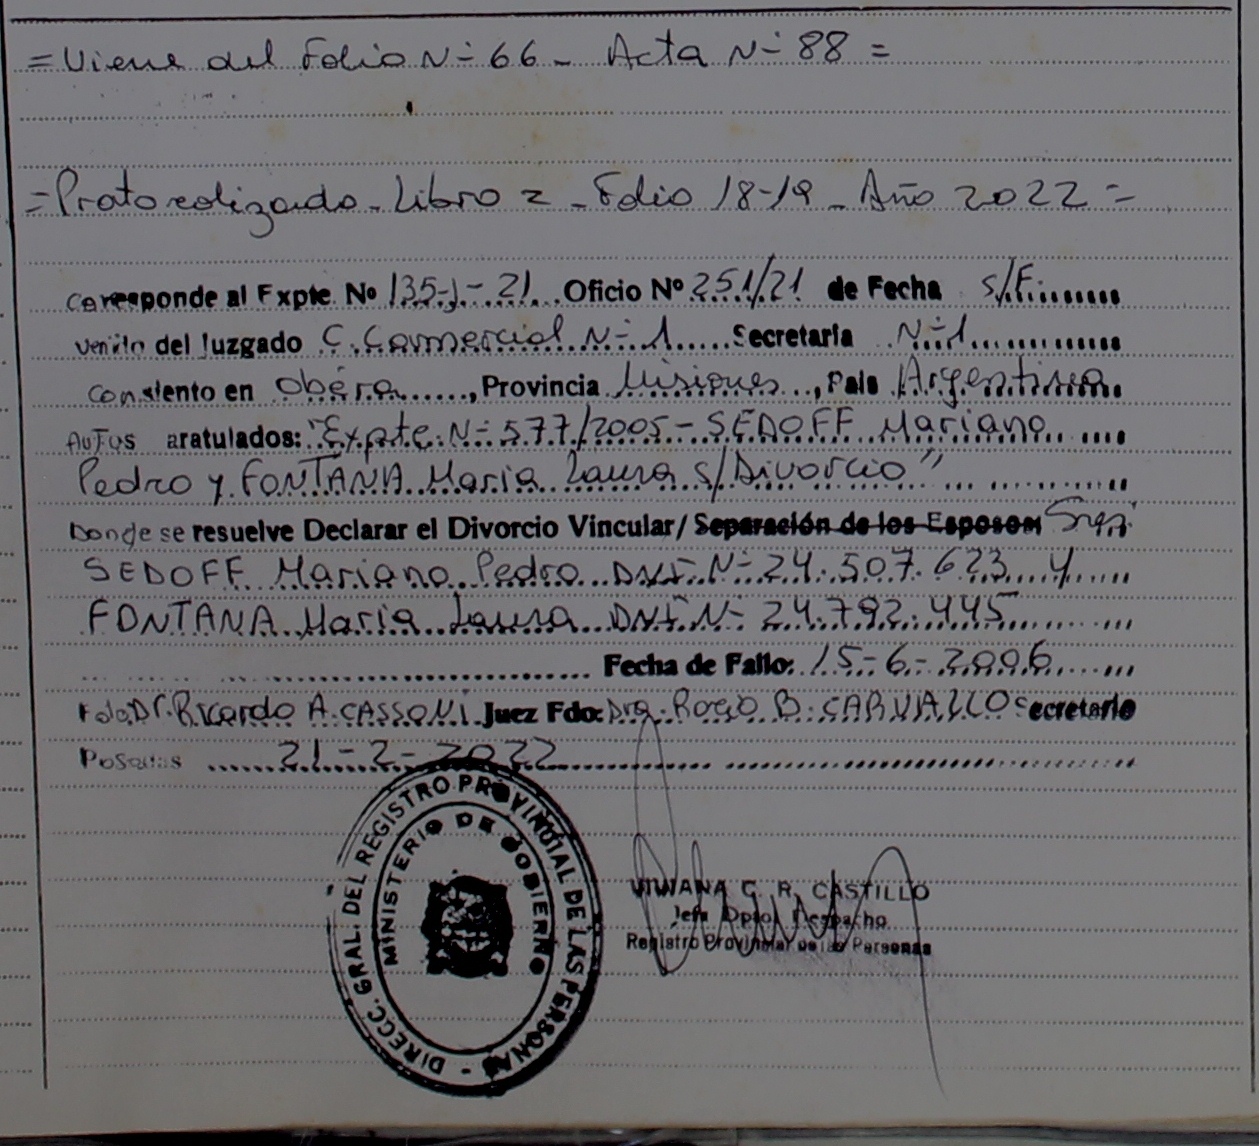 = Viene del Folio Nº 66 - Acta Nº 88 =
= Protocolizado - Libro 2 - Folio 18-19 - Año 2022 =
Corresponde al Expte. Nº 135-J-21 Oficio Nº 251/21 de Fecha S/F.
venido del Juzgado C. Comercial Nº 1 Secretaria Nº 1
Con asiento en Oberá, Provincia Misiones, País Argentina
Autos caratulados: "Expte. Nº 577/2005 - SEDOFF Mariano
Pedro y FONTANA Maria Laura s/Divorcio"
Donde se resuelve Declarar el Divorcio Vincular/ Separación de los Esposos Sres.
SEDOFF Mariano Pedro DNI Nº 24.507.623 y
FONTANA Maria Laura DNI Nº 24.792.445
Fecha de Fallo: 15-6-2006
Fdo. Dr. Ricardo A. CASSONI Juez Fdo: Dra. Rocio B. CARVALLO Secretario
Posadas 21-2-2022
DIRECC. GRAL. DEL REGISTRO PROVINCIAL DE LAS PERSONAS -
MINISTERIO DE GOBIERNO
VIVIANA G. R. CASTILLO
Jefa Dpto. Despacho
Registro Provincial de las Personas